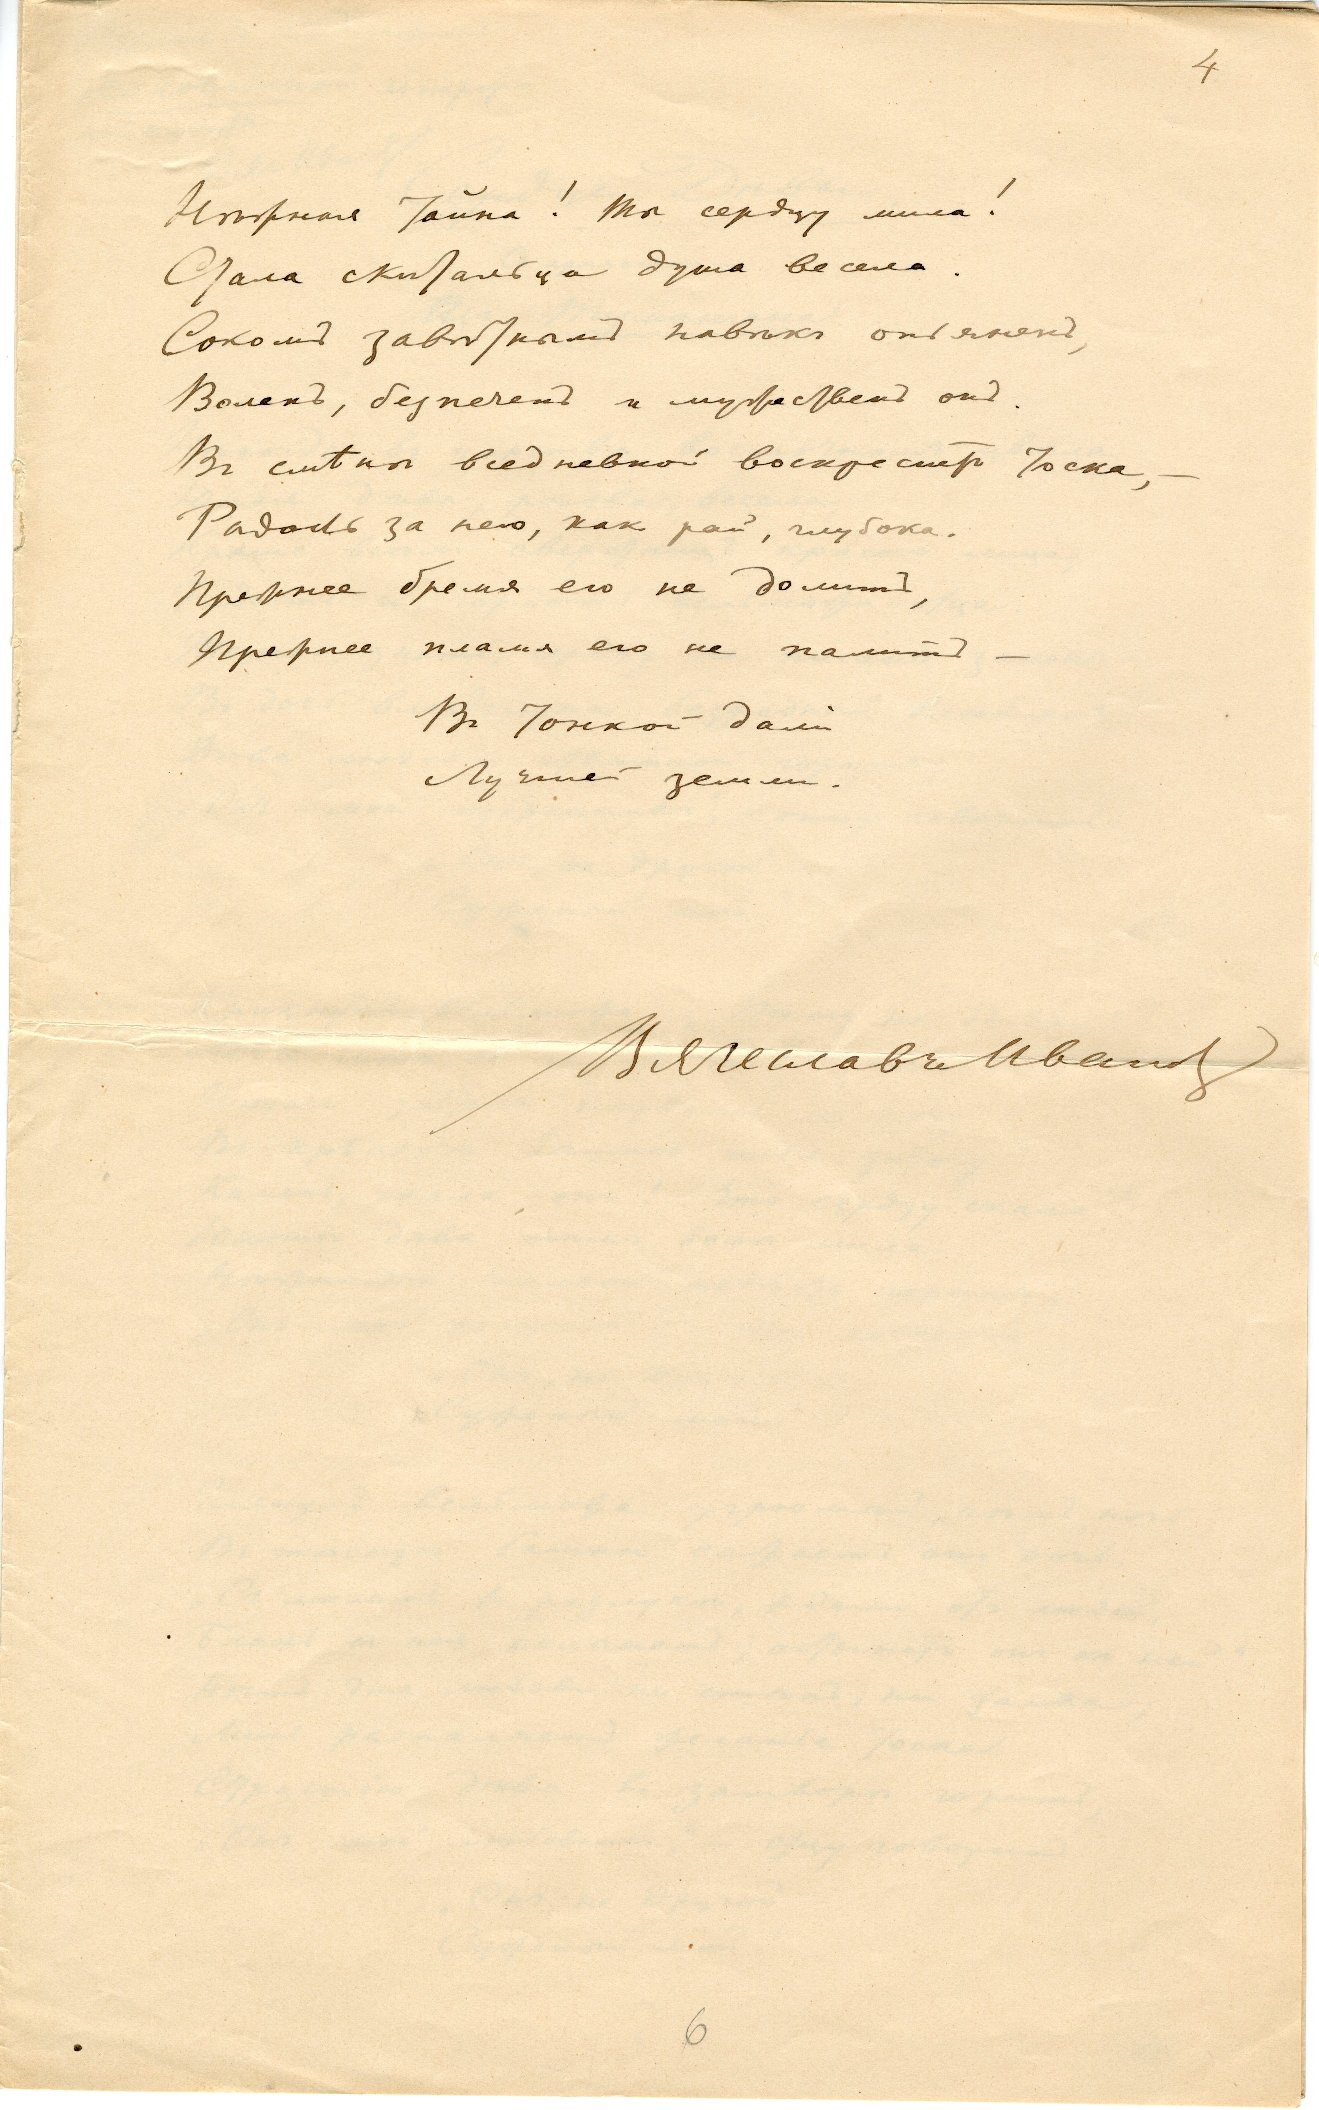 4
Нѣжная Тайна! Ты сердцу мила!
Стала скитальца душа весела.
Соколъ завѣтнымъ навѣкъ опьяненъ,
Воленъ, безпеченъ и мужественъ онъ.
Въ смѣны вседневной воскреснетъ тоска, —
Радость за нею, как рай, глубока.
Прежнее бремя его не долитъ,
Прежнее пламя его не палитъ —
Въ тонкой дали
Лучшей земли.
Вячеславъ Ивановъ
6